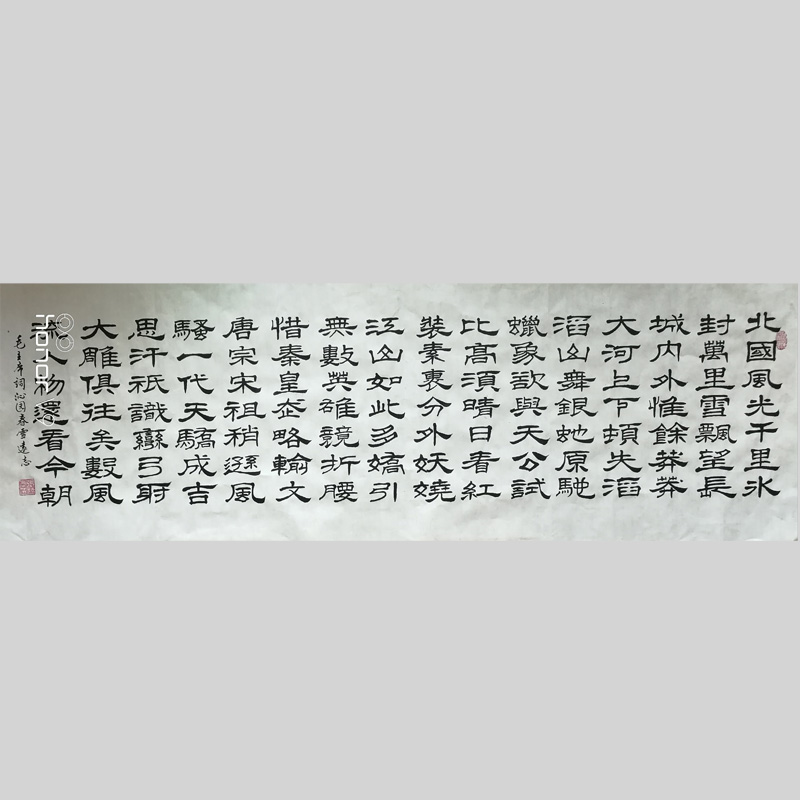 北國風光千里氷
封萬里雪飄望長
城內外惟餘莽莽
大河上下頓失滔
滔山舞銀虵原馳
蠟象欲與天公試
比高須晴日看紅
裝素裹分外妖嬈
江山如此多嬌引
無數英雄競折腰
惜秦皇武略輸文
唐宗宋祖稍遜風
騷一代天驕成吉
思汗祇識彎弓射
大雕俱往矣數風
流人物還看今朝
毛主席詞沁園春雪遠志
honor